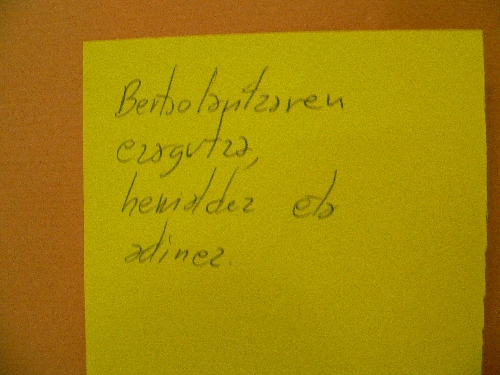 Bertsolaritzaren
ezagutza,
herrialdez eta
adinez.